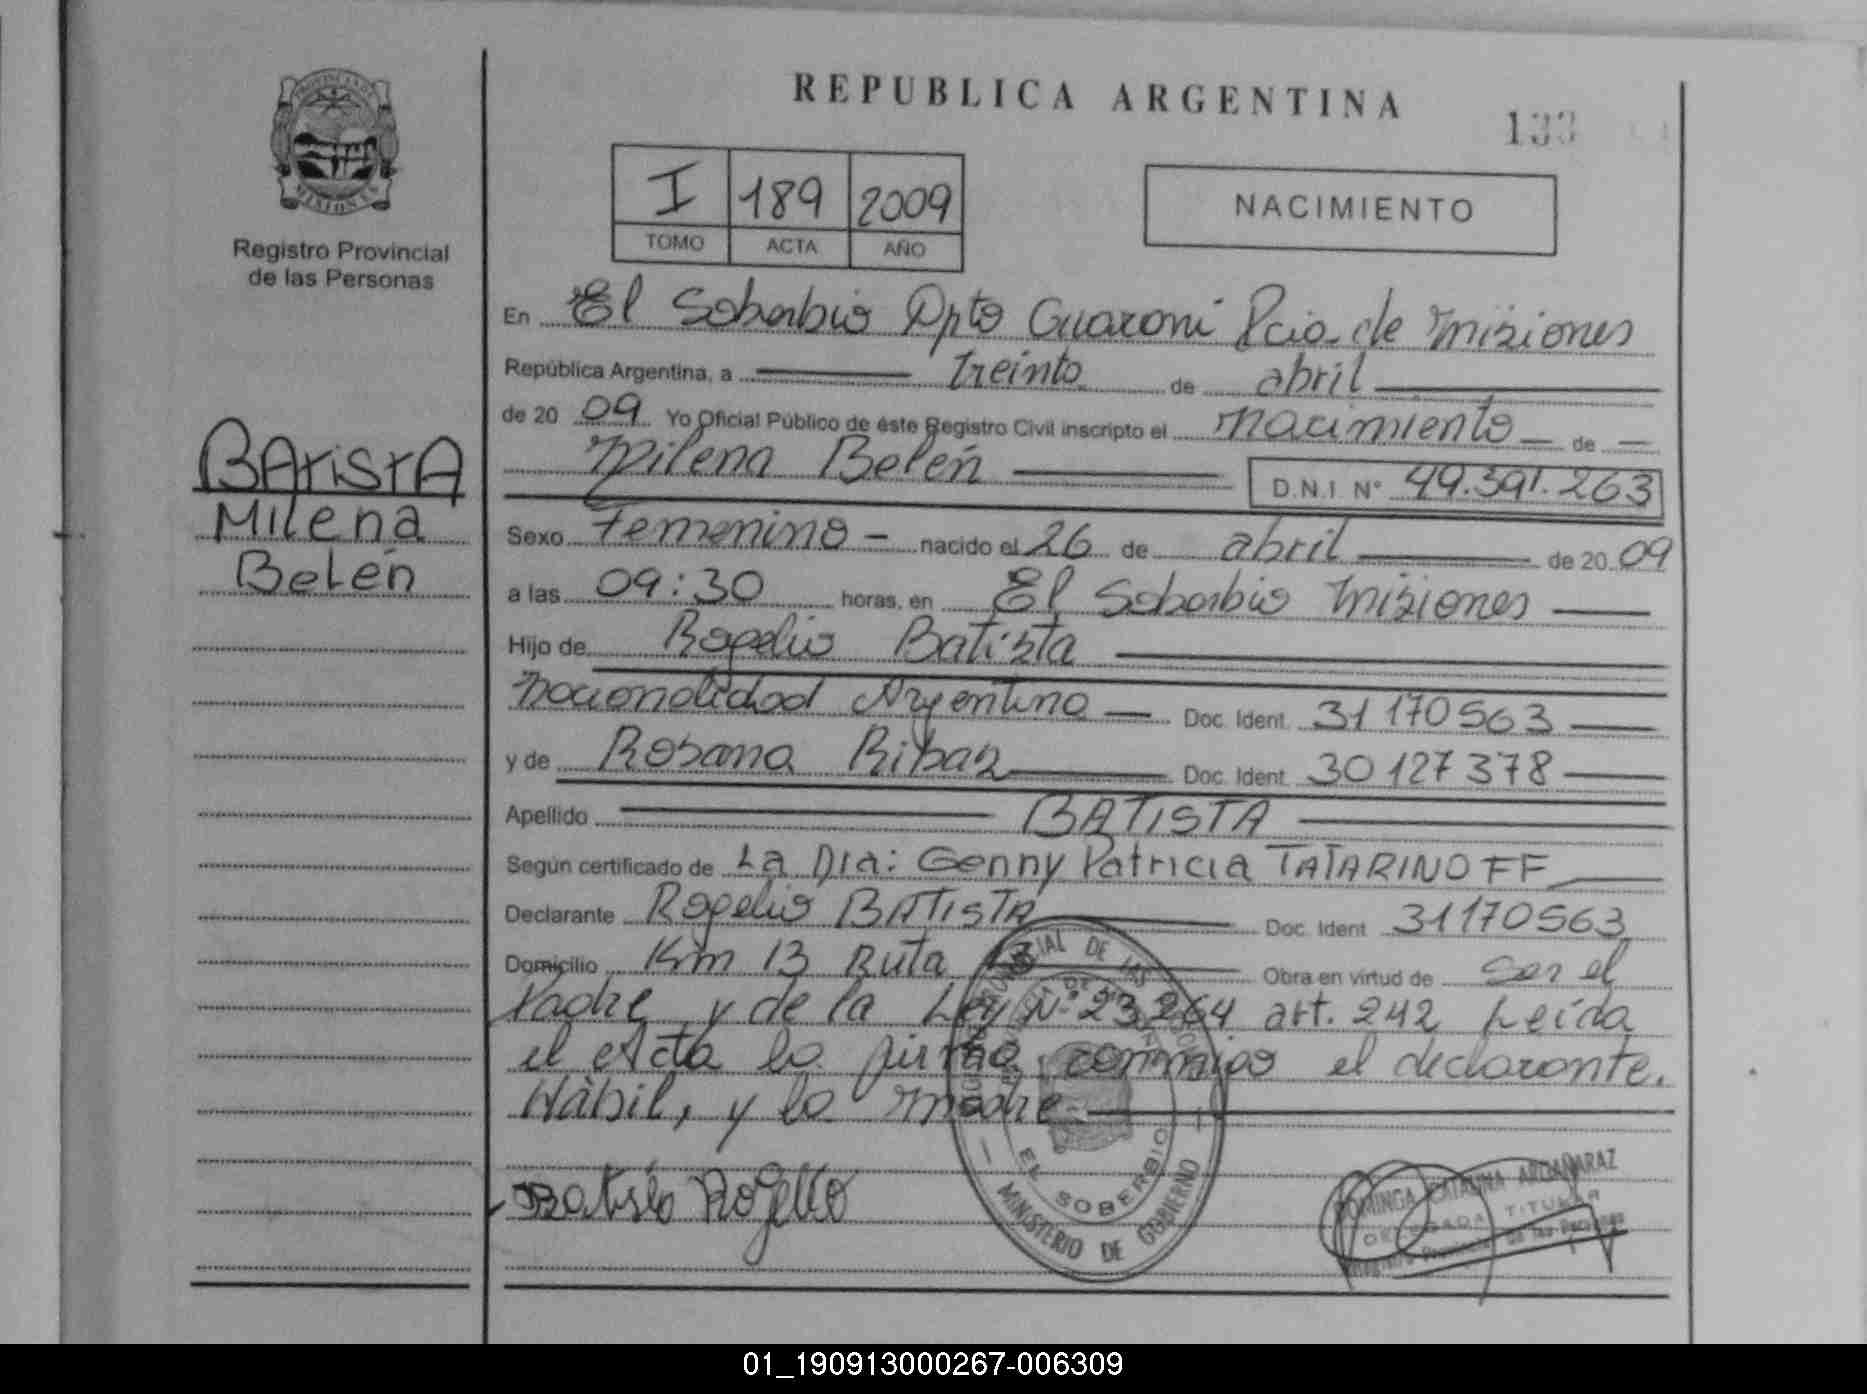 REPUBLICA ARGENTINA
133
PROVINCIA DE
MISIONES
Registro Provincial
de las Personas
I 189 2009
TOMO ACTA AÑO
NACIMIENTO
En El Soberbio Dpto Guaraní Pcia. de Misiones
República Argentina, a treinta de abril
de 20 09 Yo Oficial Público de éste Registro Civil inscripto el Nacimiento de
Milena Belén D.N.I. N° 49.391.263
BATISTA
Milena
Belén
Sexo Femenino - nacido el 26 de abril de 20 09
a las 09:30 horas, en El Soberbio Misiones
Hijo de Rogelio Batista
Nacionalidad Argentina Doc. Ident. 31170563
y de Rosana Ribas Doc. Ident. 30127378
Apellido BATISTA
Según certificado de La Dra: Genny Patricia TATARINOFF
Declarante Rogelio BATISTA Doc. Ident 31170563
Domicilio Km 13 Ruta 13 Obra en virtud de ser el
Padre y de la Ley N° 23264 art. 242 Leída
el Acta la firma conmigo el declarante.
Hàbil, y la madre
Batista Rogelio
EL SOBERBIO
MINISTERIO DE GOBIERNO
DOMINGA CATALINA ARGAÑARAZ
DELEGADA TITULAR
Registro Provincial de las Personas
01_190913000267-006309